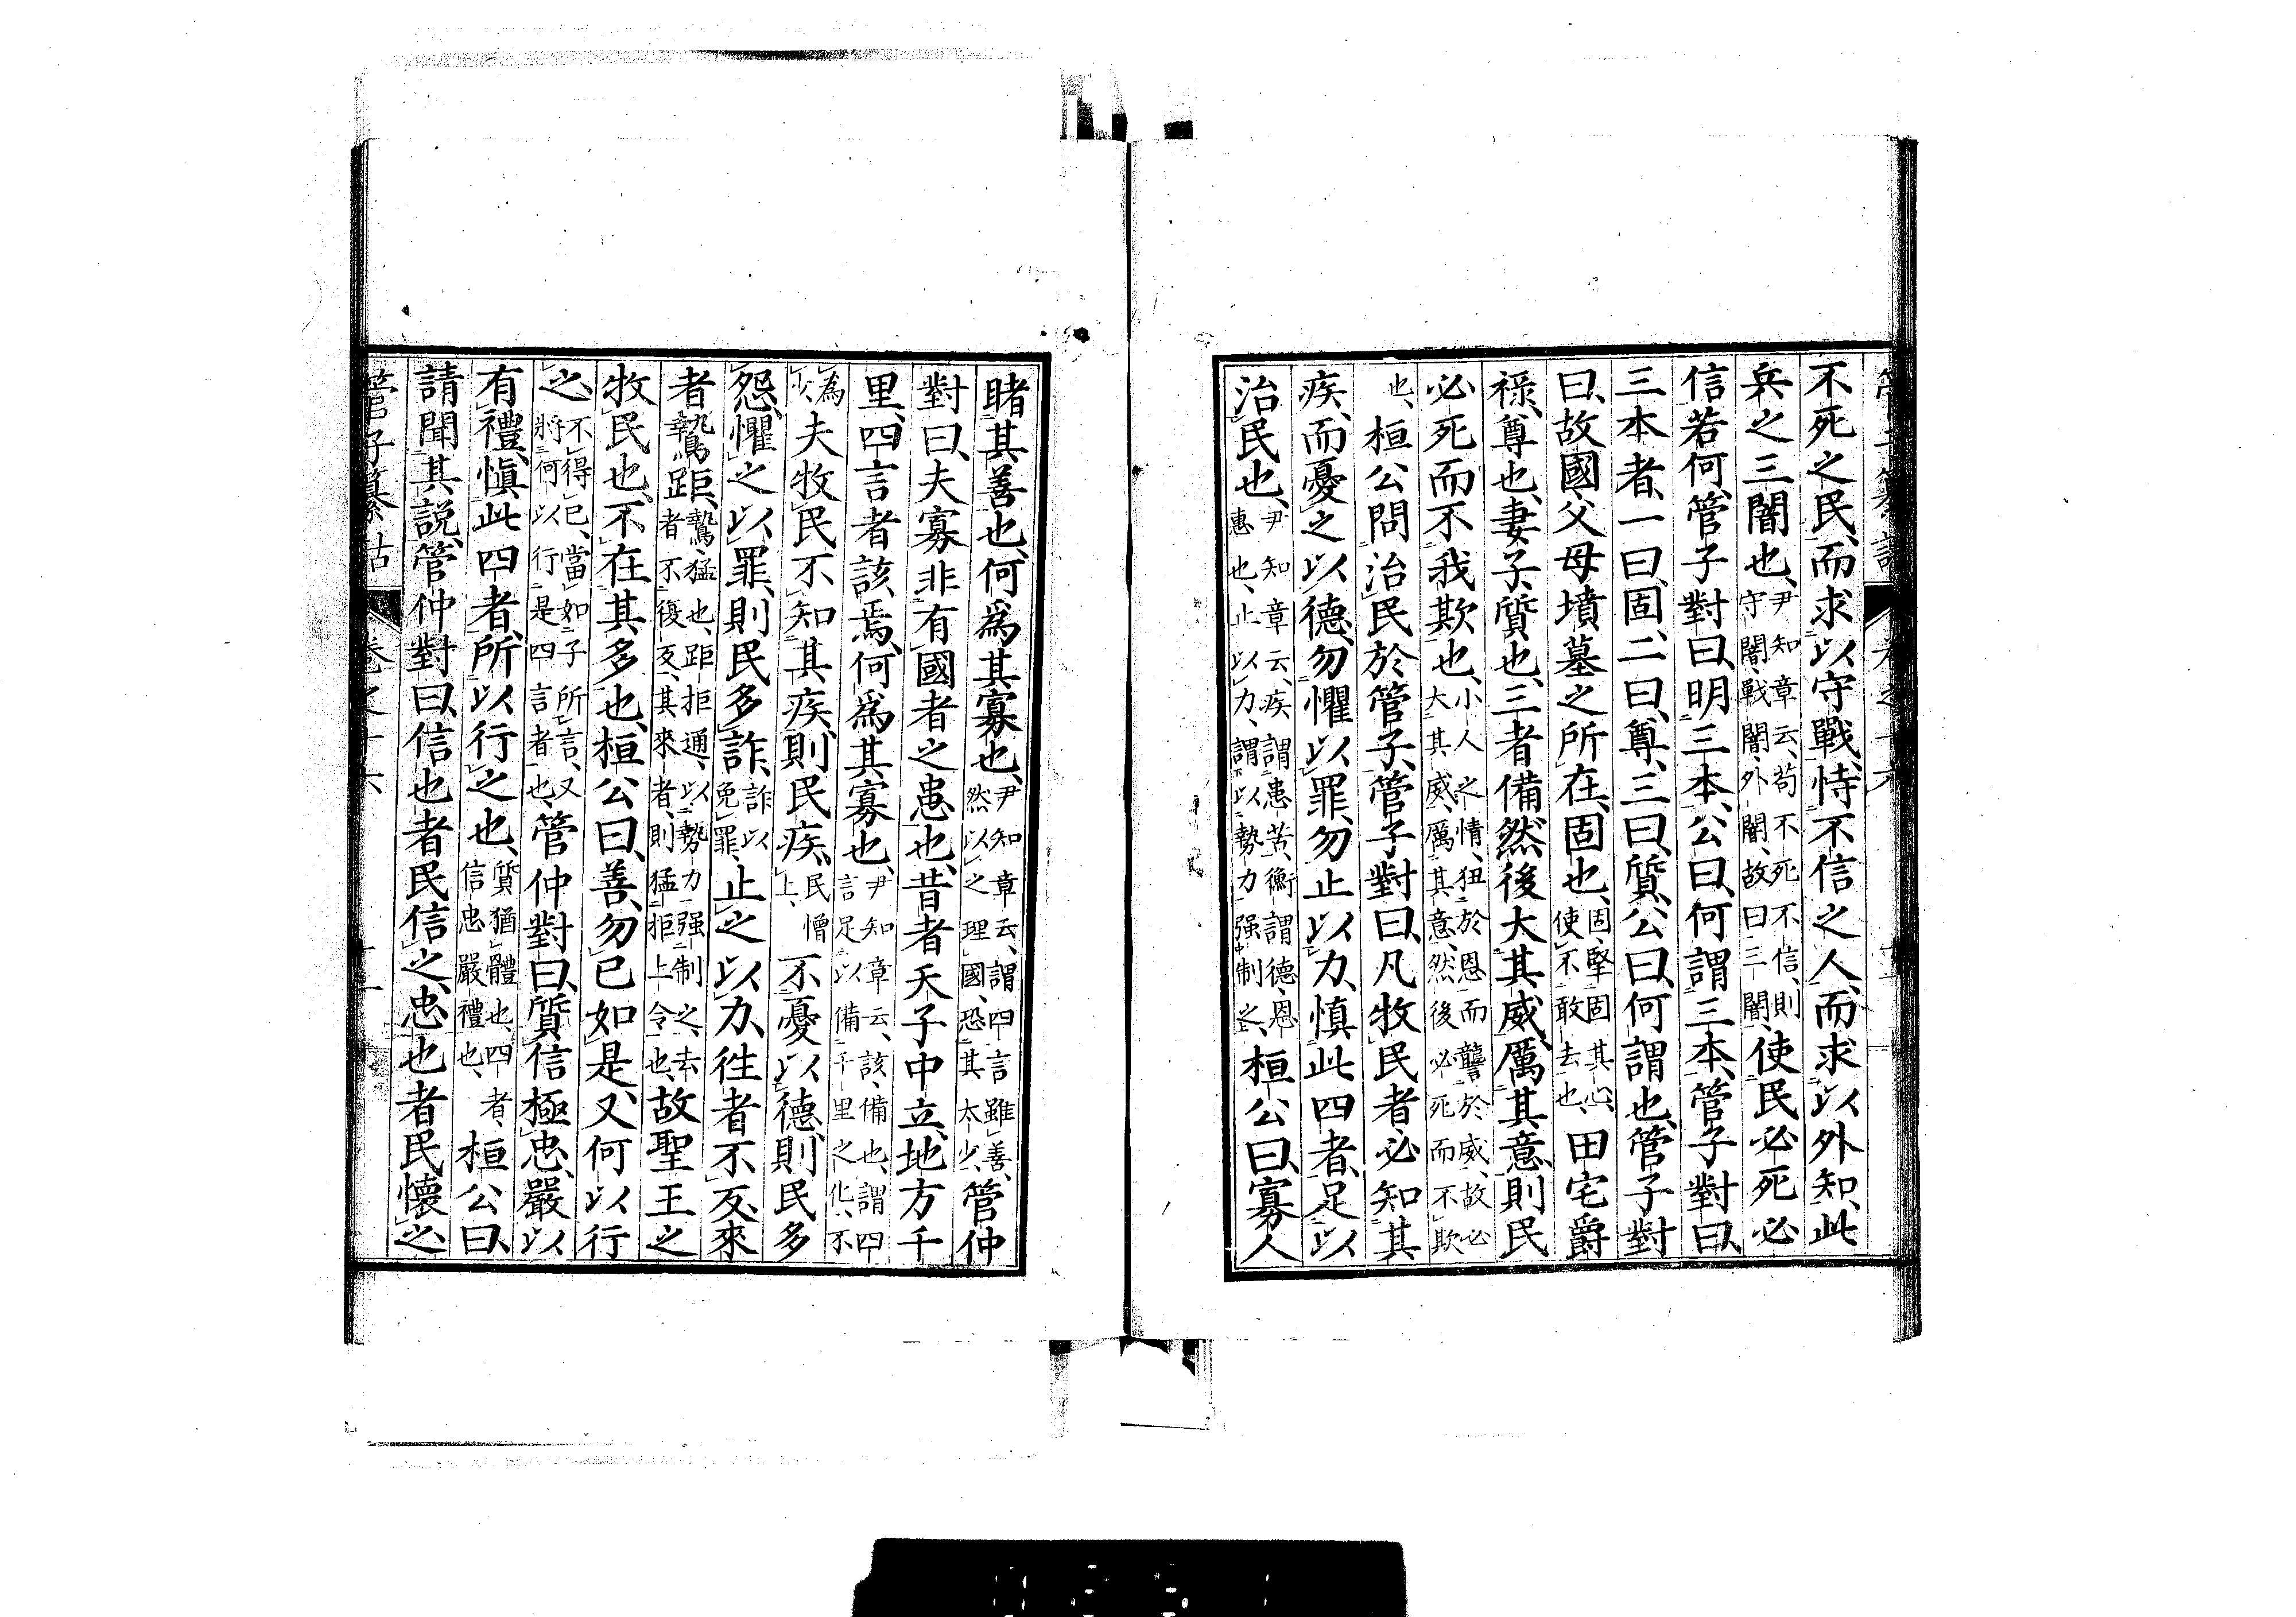 不死之民、而求以守戰、恃不信之人、而求以外知、此
兵之三闇也、尹知章云、苟不死不信、則守闇、戰闇、外闇、故曰三闇、使民必死必
信若何、管子對曰、明三本、公曰、何謂三本、管子對曰、
三本者、一曰、固、二曰、尊、三曰、質、公曰、何謂也、管子對
曰、故國父母墳墓之所在、固也、固、堅固其心、使不敢去也、田宅爵
祿、尊也、妻子、質也、三者備、然後大其威、厲其意、則民
必死而不我欺也、小人之情、狃於恩而讋於威、故必大其威、厲其意、然後必死而不欺
也、桓公問治民於管子、管子對曰、凡牧民者、必知其
疾、而憂之以德、勿懼以罪、勿止以力、慎此四者、足以
治民也、尹知章云、疾謂患苦、衡謂德、恩惠也、止以力、謂以勢力强制之、桓公曰、寡人
睹其善也、何爲其寡也、尹知章云、謂四言雖善、然以之理國、恐其太少、管仲
對曰、夫寡非有國者之患也、昔者天子中立、地方千
里、四言者該焉、何爲其寡也、尹知章云、該、備也、謂四言足以備千里之化、不
為少、夫牧民不知其疾、則民疾、民憎上、不憂以德、則民多
怨、懼之以罪、則民多詐、詐以免罪、止之以力、往者不反、來
者鷙距、鷙、猛也、距拒通、以勢力强制之、去者不復反、其來者、則猛拒上令也、故聖王之
牧民也、不在其多也、桓公曰、善、勿已如是、又何以行
之、不得已、當如子所言、又將何以行是四言者也、管仲對曰、質信極忠、嚴以
有禮、慎此四者、所以行之也、質猶體也、四者、信忠嚴禮也、桓公曰、
請聞其說、管仲對曰、信也者民信之、忠也者民懷之、
管子纂詁 卷之十六